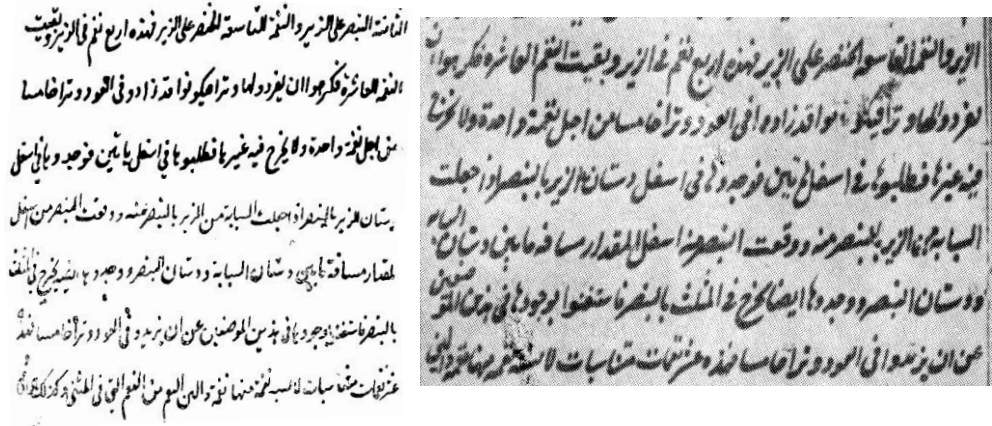 الزير والنغمة التاسعة الخنصر على الزير فهذه اربع نغم فى الزير وبقيت النغم العاشرة فكرهوا ان
يفردوا لها وترا فيكونوا قد زادوا فى العود وترا خامسا من اجل نغمة واحدة ولا يخرج
فيه غيرها فطلبوها فى اسفل فوجدوها فى اسفل دستان الزير بالبنصر اذ جعلت
السبابة من الزير بالبنصر منه ووقعت البنصر منه اسفل المقدار مسافة ما بين دستان السبابه
ودستان البنصر ووجدوها ايضا يخرج فى المثلث بالبنصر فاستغنوا بوجودها فى هذين الموضعين
عن ان يزيدوا فى العود وترا خامسا فهذه عشر نغمات متناسبات لا تشبه نغمة منها نغمة
الثامنة البنصر على الزير والنغمة التاسعة الخنصر على الزير فهذه اربع نغم فى الزير وبقيت
النغمة العاشرة فكرهوا ان يفردوا لها وترا فيكونوا قد زادوا فى العود وترا خامسا
من اجل نغمة واحدة ولا يخرج فيه غيرها فطلبوها فى اسفل فوجدوها فى اسفل
دستان الزير بالبنصر اذ جعلت السبابة من الزير بالبنصر منه ووقعت البنصر من اسفل
لمقدار مسافة ما بين دستان السبابة ودستان البنصر ووجدوها ايضا يخرج فى المثلث
بالبنصر فاستغنوا بوجودها فى هذين الموضعين عن ان يزيدوا فى العود وترا خامسا فهذه
عشر نغمات متناسبات لا تشبه نغمة منها نغمة من النغم التى فى المثنى وكذلك